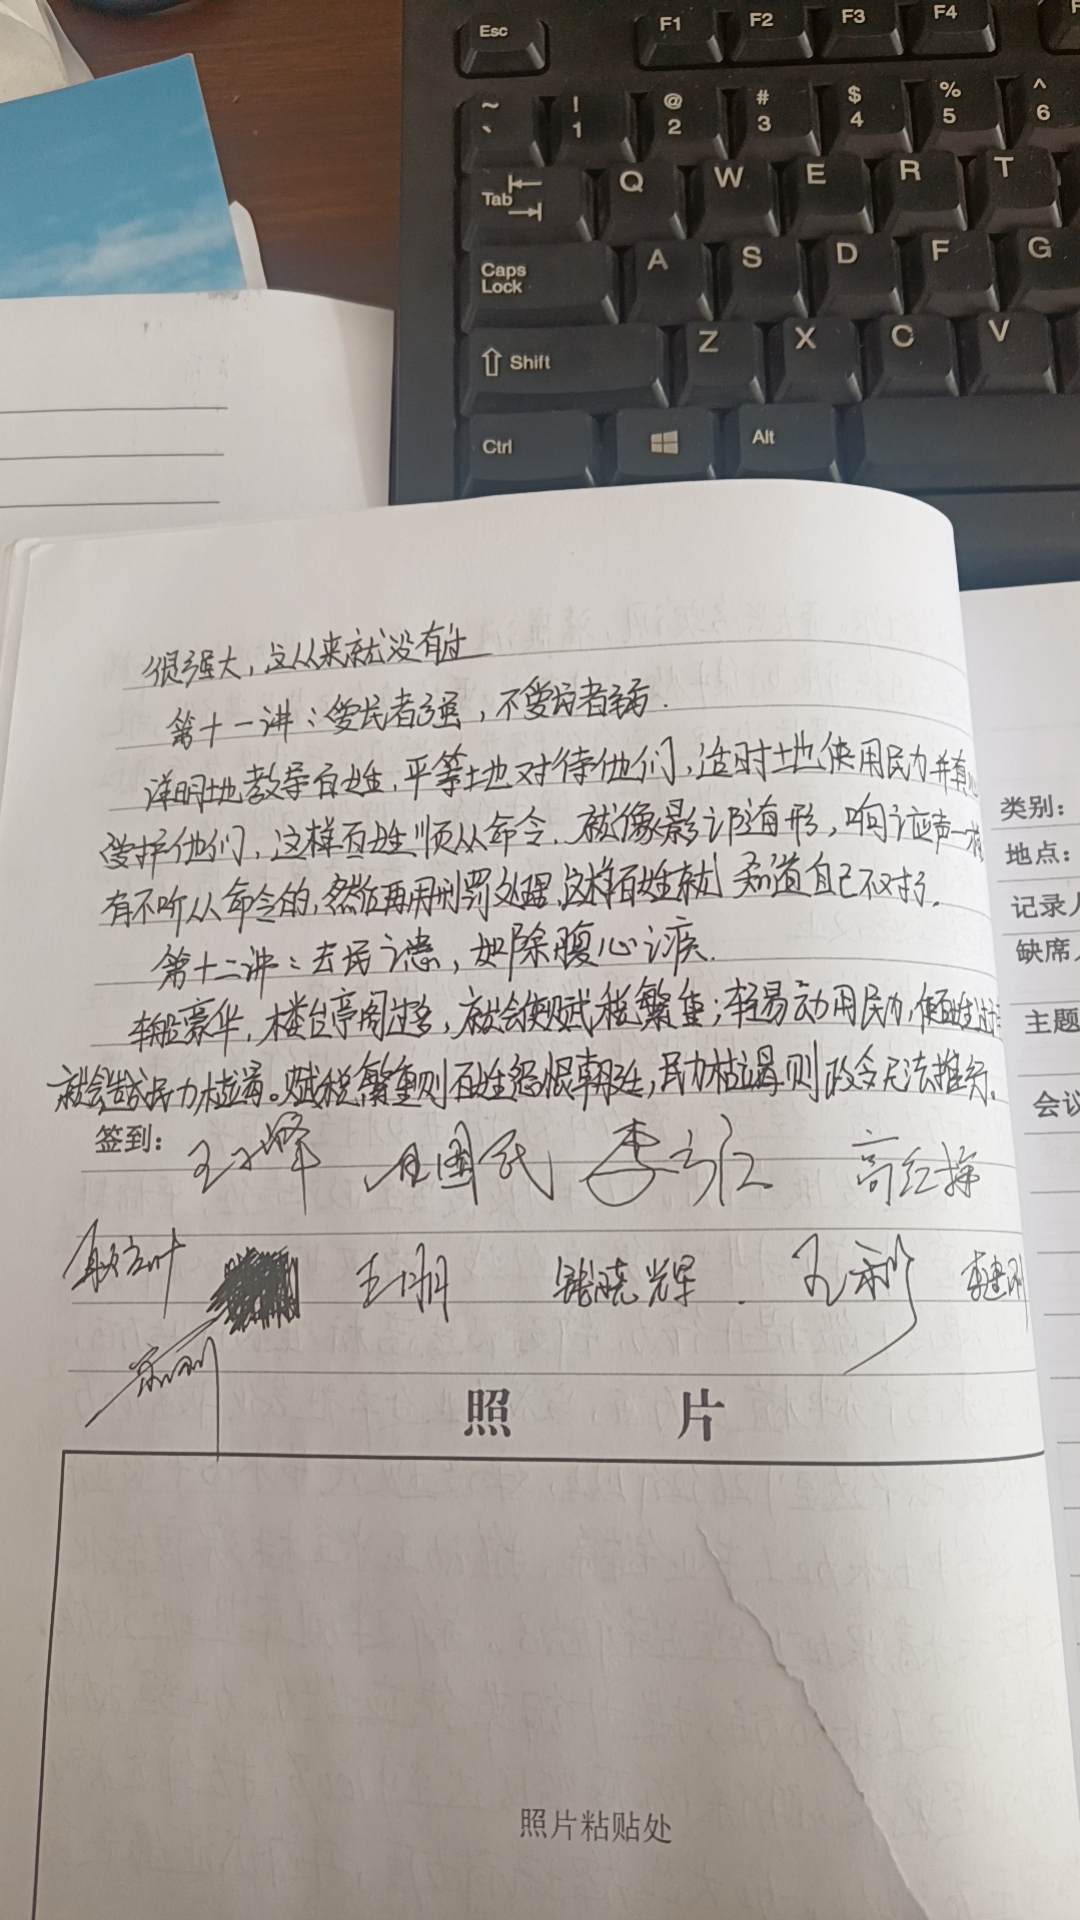 Esc F1 F2 F3 F4 F
~ ` ! 1 @ 2 # 3 $ 4 % 5 ^ 6
Tab Q W E R T
Caps Lock A S D F G
Shift Z X C V
Ctrl Alt
很强大，这从来就没有过
第十一讲：爱民者强，不爱民者弱．
详明地教导百姓，平等地对待他们，适时地使用民力并有心
爱护他们，这样百姓顺从命令，就像影 形，响 声一样
有不听从命令的，然后再用刑罚处理，这样百姓就知道自己不对了．
第十二讲：去民之患，如除腹心之疾．
车船豪华，楼台亭阁过多，就会使赋税繁重；轻易动用民力，使百姓
就会造成民力枯竭。赋税繁重则百姓怨恨朝廷，民力枯竭则政令无法推行．
签到： 周国民 高红
张晓辉． 李建刚
照 片
照片粘贴处
类别：
地点：
记录人
缺席人
主题
会议